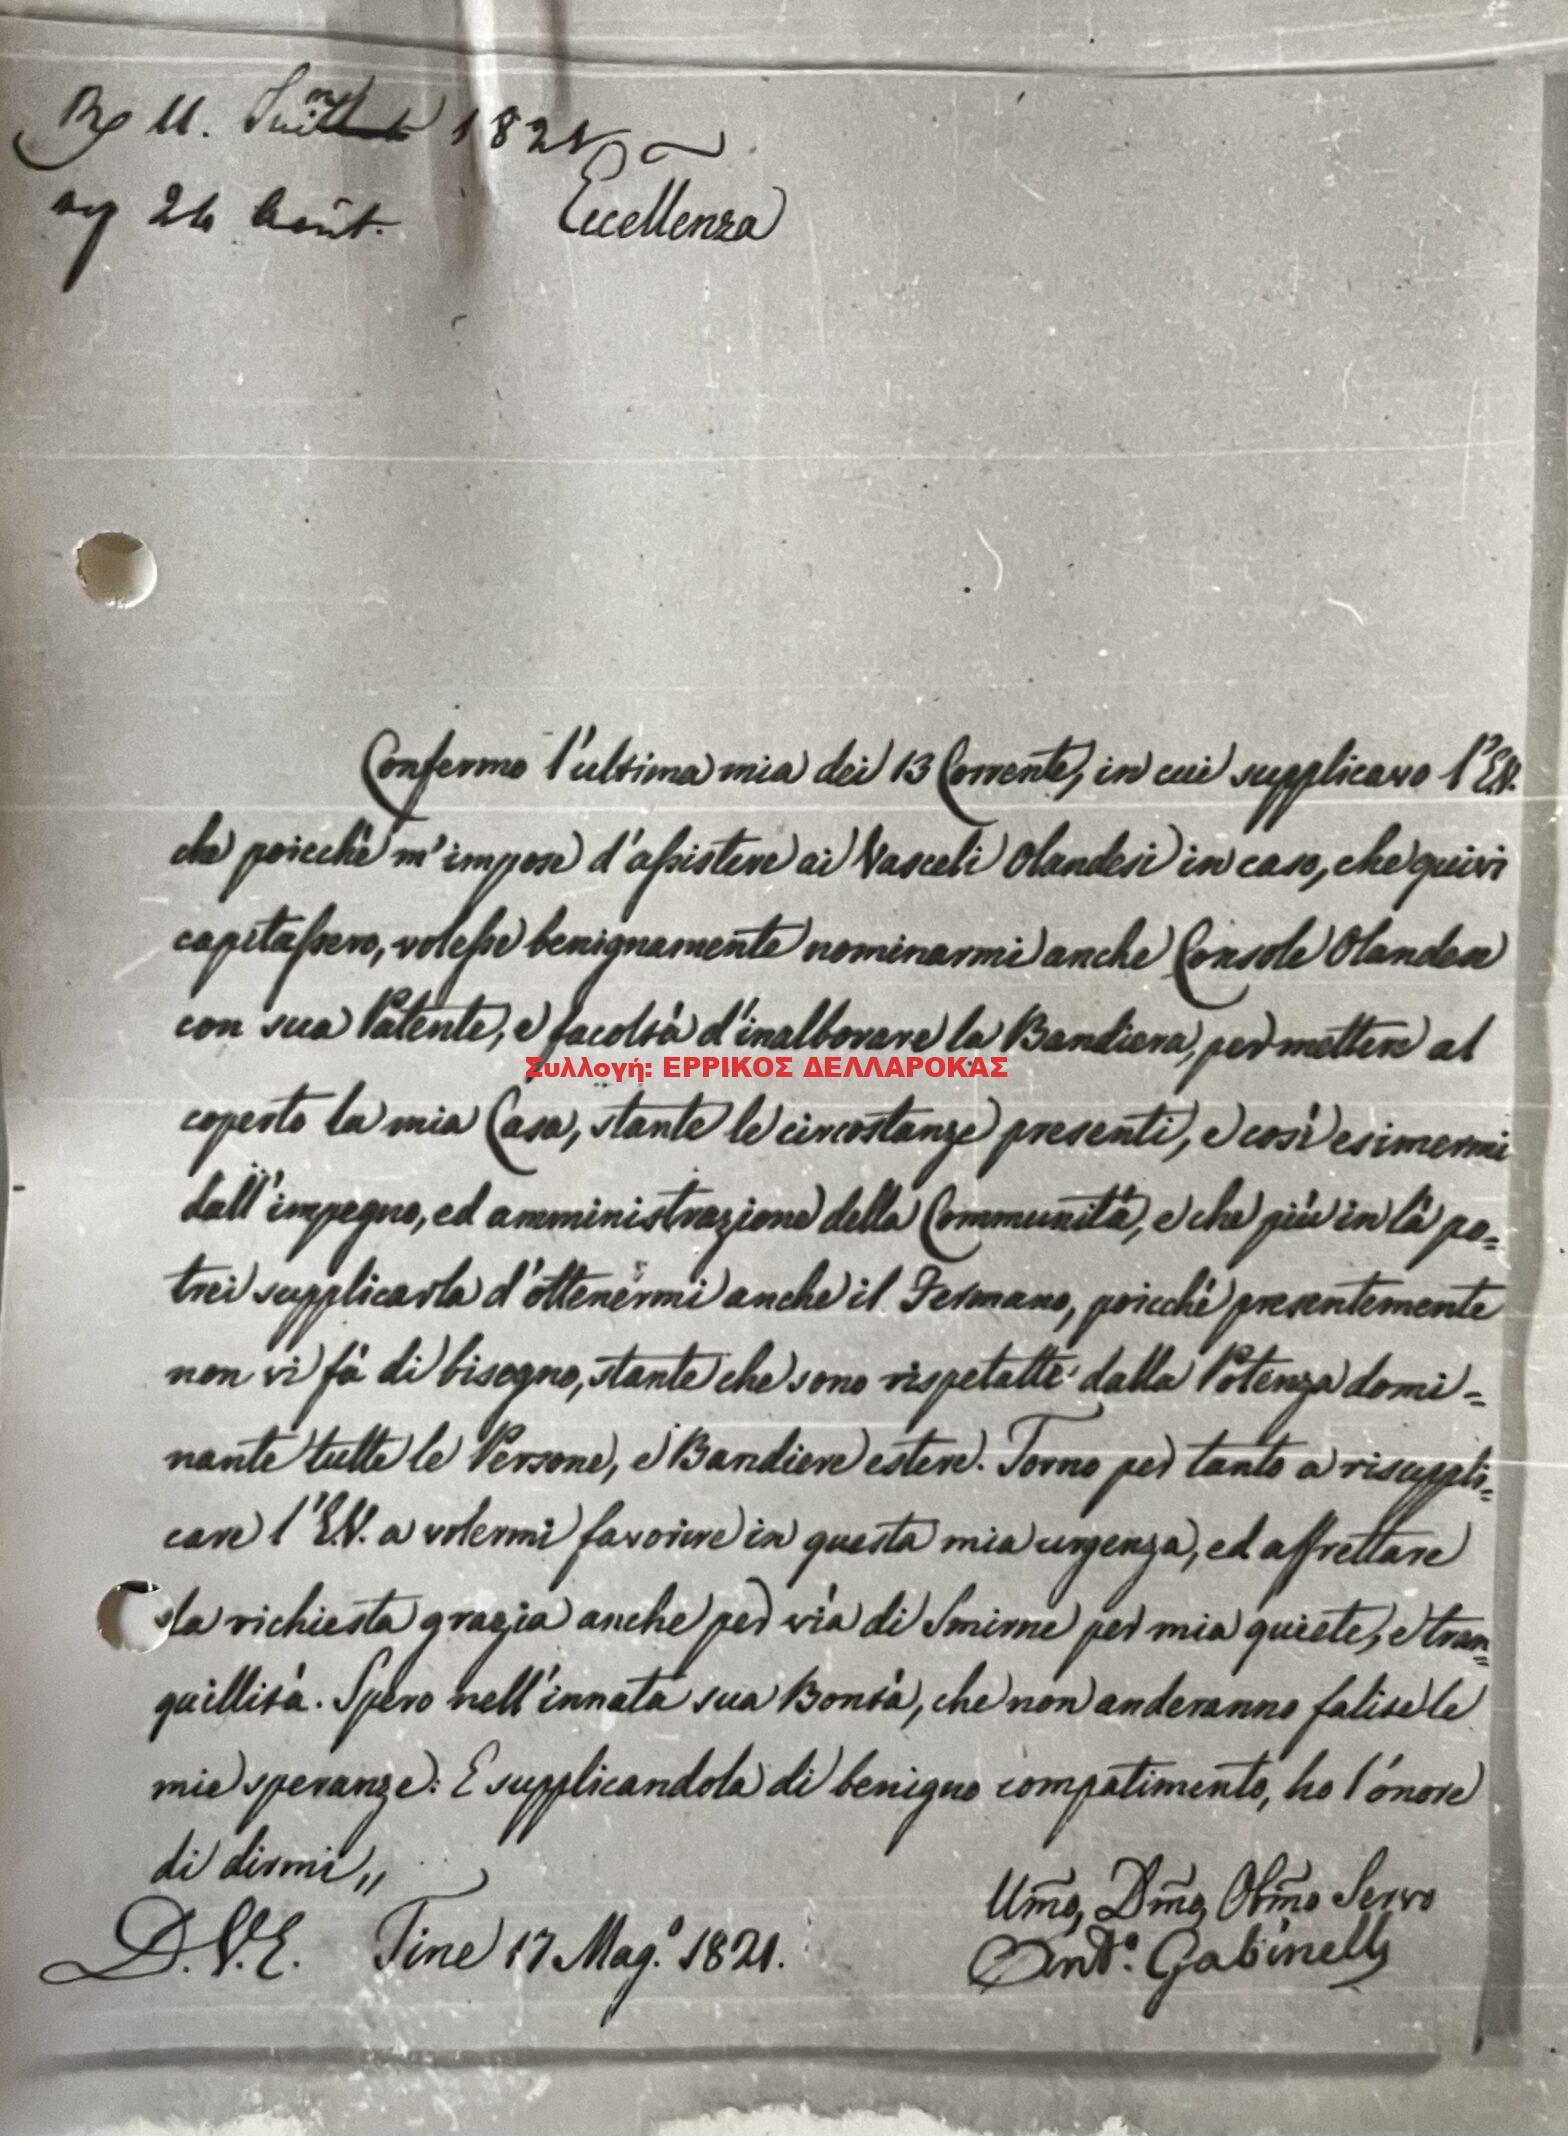 11. 1821
24 Août.
Eccellenza
Confermo l'ultima mia dei 13 Corrente, in cui supplicavo l'E.V.
che poicchè m'impose d'assistere ai Vasceli Olandesi in caso, che quivi
capitassero, volesse benignamente nominarmi anche Console Olandese
con sua Patente, e facoltà d'inalborare la Bandiera, per mettere al
Συλλογή: ΕΡΡΙΚΟΣ ΔΕΛΛΑΡΟΚΑΣ
coperto la mia Casa, stante le circostanze presenti, e così esimermi
dall'impegno, ed amministrazione della Communità, e che più in là po=
trei supplicarla d'ottenermi anche il Fermano, poicchè presentemente
non vi fà di bisogno, stante che sono rispetatte dalla Potenza domi=
nante tutte le Persone, e Bandiere estere. Torno per tanto a risuppli=
care l'E.V. a volermi favorire in questa mia urgenza, ed affrettare
la richiesta grazia anche per via di Smirne per mia quiete, e tran=
quillità. Spero nell'innata sua Bontà, che non anderanno falite le
mie speranze: E supplicandola di benigno compatimento, ho l'onore
di dirmi,,
D.V.E. Tine 17 Mag.o 1821.
Umo, Dmo, Obmo Servo
Ant.o Gabinelli